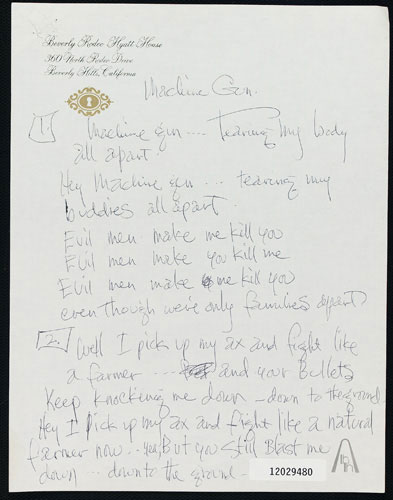 Beverly Rodeo Hyatt House
360 North Rodeo Drive
Beverly Hills, California
Machine Gun.
1. Machine gun .... Tearing My body
all apart.
Hey Machine gun ... tearing my
buddies all apart.
Evil men make me kill you
Evil men make you kill me
Evil men make me kill you
even though we're only families apart
2. Well I pick up my ax and fight like
a farmer ... and your Bullets
Keep Knocking me down - down to the ground.
Hey I pick up my ax and fight like a natural
farmer now .. yea, But you Still Blast me
down ... down to the ground -
12029480